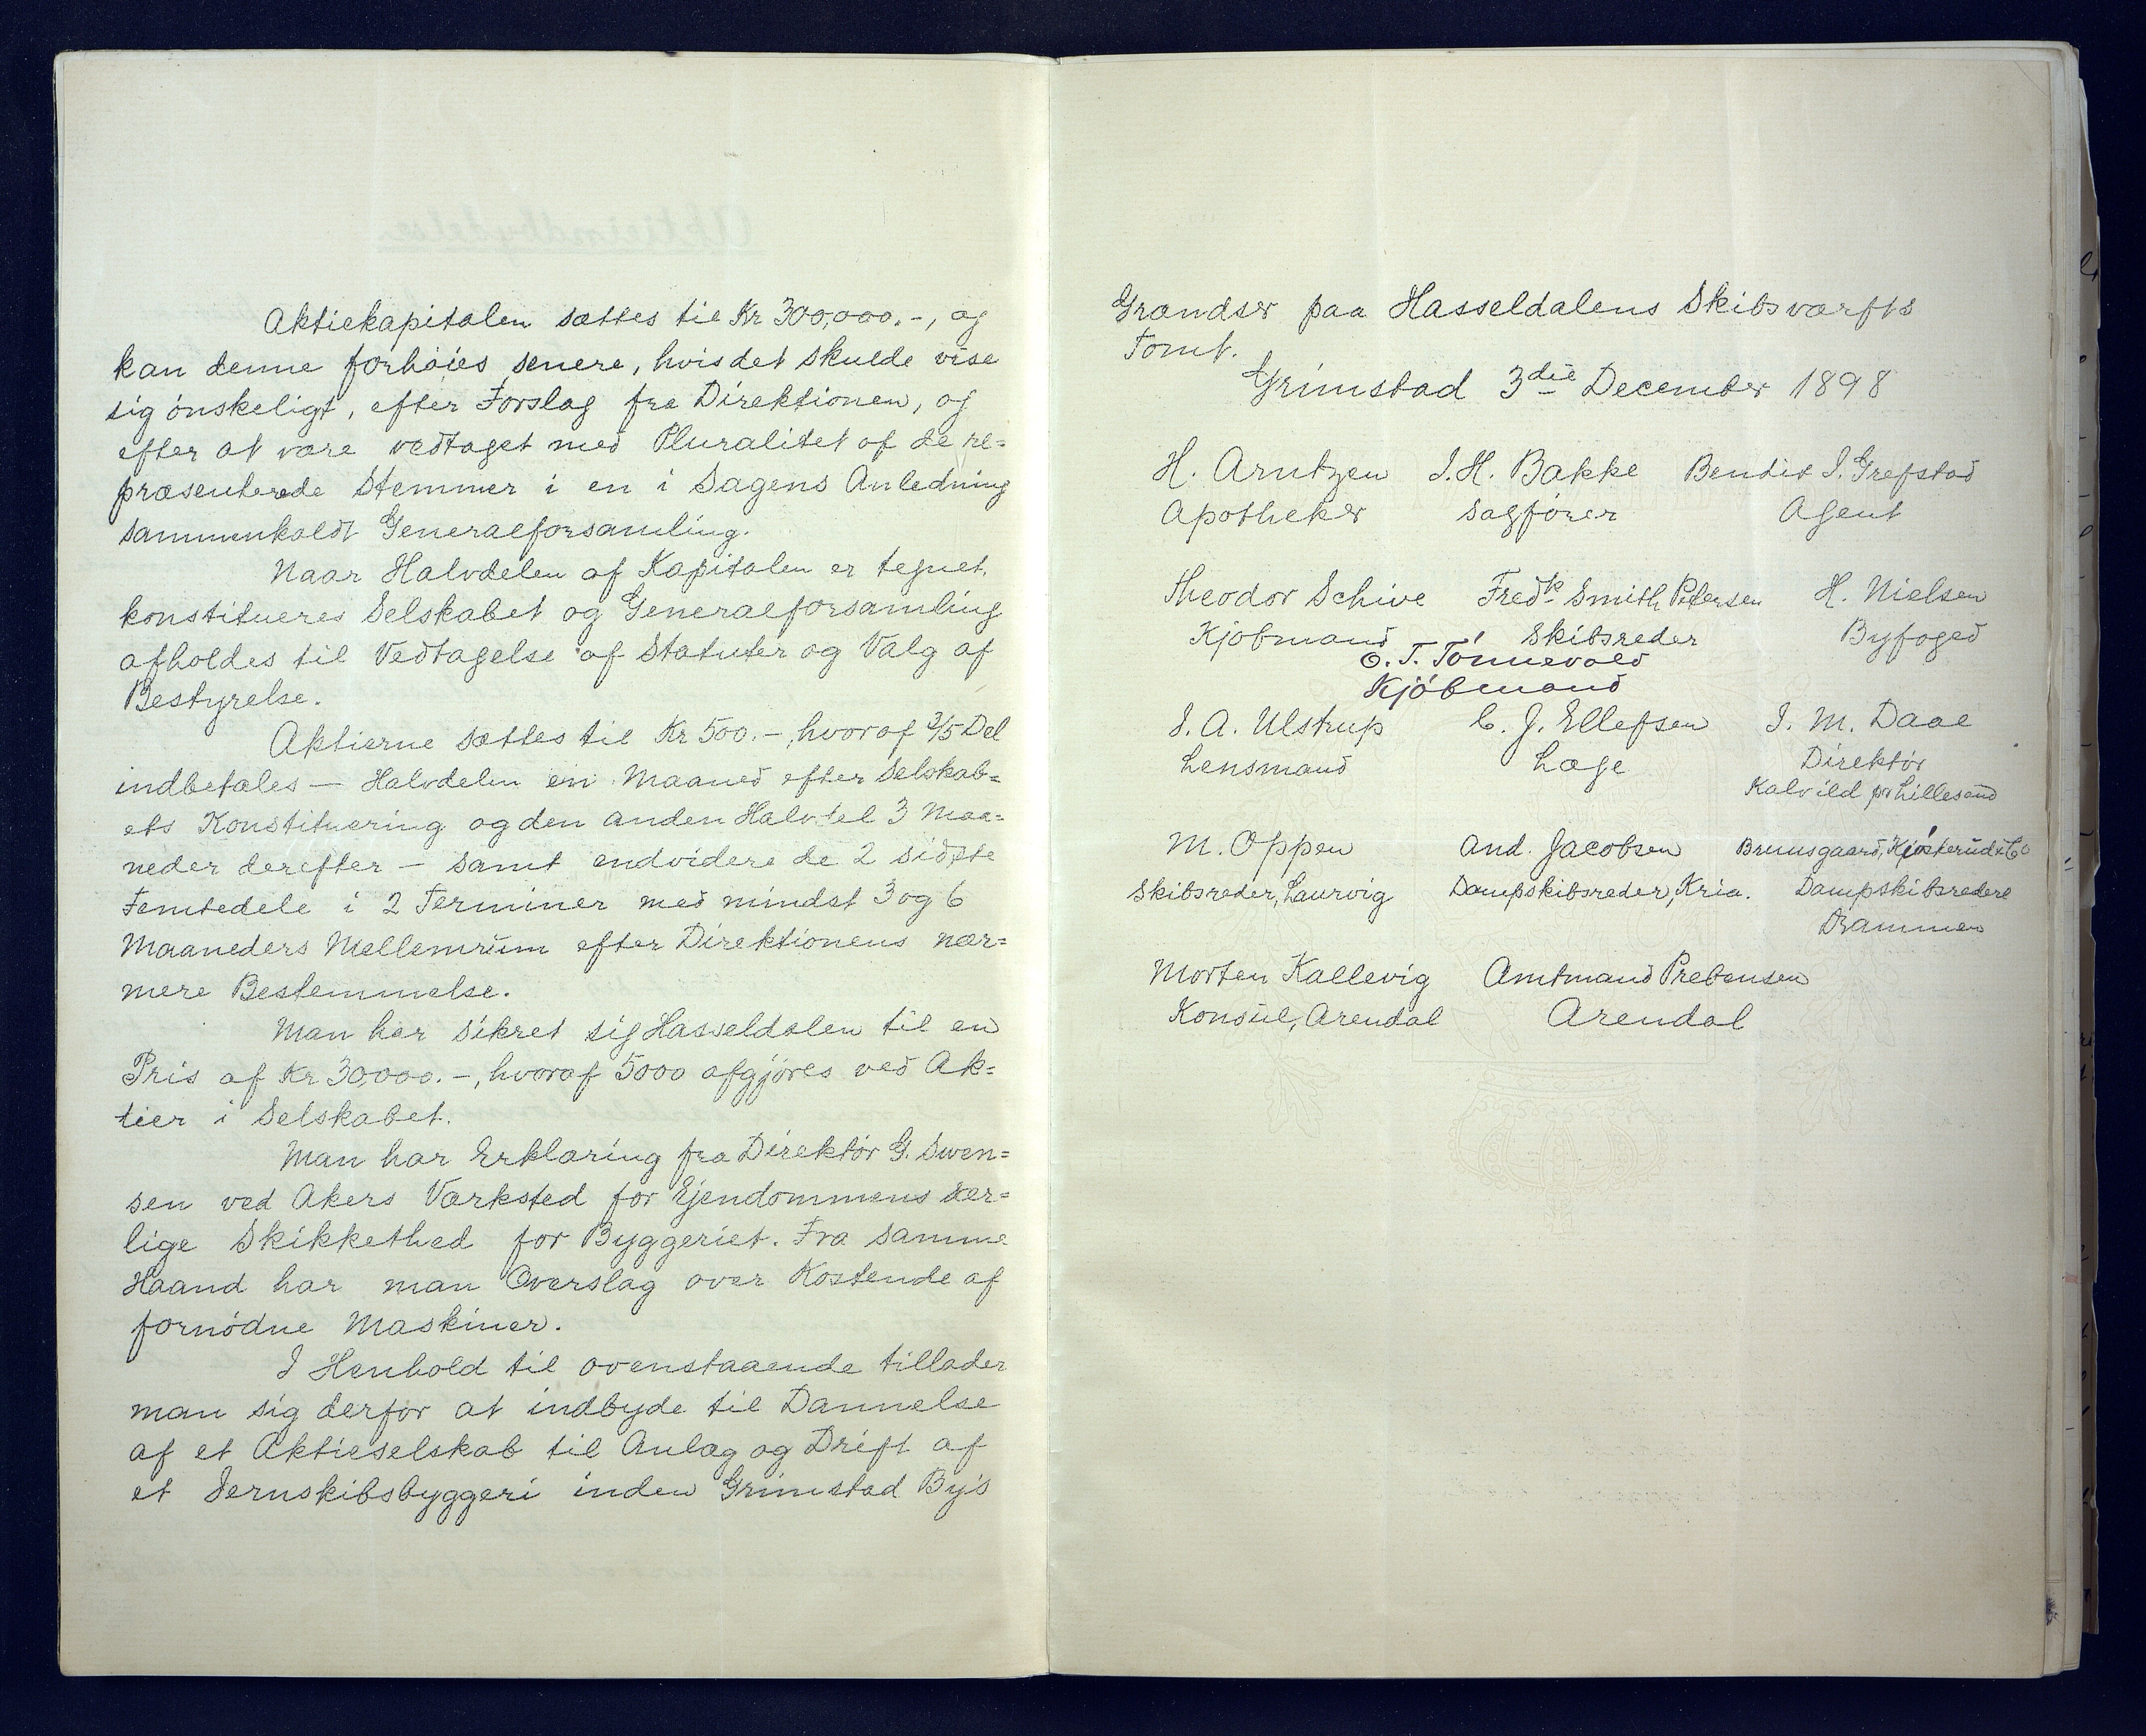 Aktiekapitalen sættes til Kr 300,000.-, og
kan denne forhöies senere, hvis det skulde vise
sig önskeligt, efter Forslag fra Direktionen, og
efter at være vedtaget med Pluralitet af de re=
præsenterede Stemmer i en i Sagens Anledning
sammenkaldt Generalforsamling.
Naar Halvdelen af Kapitalen er tegnet,
konstitueres Selskabet og Generalforsamling
afholdes til Vedtagelse af Statuter og Valg af
Bestyrelse.
Aktierne sættes til Kr 500.-, hvoraf 3/5 Del
indbetales — Halvdelen en Maaned efter Selskab=
ets Konstituering og den anden Halvdel 3 Maa=
neder derefter — samt endvidere de 2 sidste
Femtedele i 2 Terminer med mindst 3 og 6
Maaneders Mellemrum efter Direktionens nær=
mere Bestemmelse.
Man har sikret sig Hasseldalen til en
Pris af Kr 30,000.-, hvoraf 5000 afgjöres ved Ak=
tier i Selskabet.
Man har Erklæring fra Direktör G. Swen=
sen ved Akers Værksted for Ejendommens sær=
lige Skikkethed for Byggeriet. Fra samme
Haand har man Overslag over Kostende af
fornödne Maskiner.
I Henhold til ovenstaaende tillader
man sig derfor at indbyde til Dannelse
af et Aktieselskab til Anlæg og Drift af
et Jernskibsbyggeri inden Grimstad By's
Grændser paa Hasseldalens Skibsværfts
Tomt.
Grimstad 3die December 1898
H. Arntzen J. H. Bakke Bendix J. Grefstad
Apotheker Sagförer Agent
Theodor Schive Fredk Smith Petersen H. Nielsen
Kjöbmand Skibsreder Byfoged
O. T. Tönnevold
Kjöbmand
J. A. Ulstrup C. J. Ellefsen J. M. Daae
Lensmand Læge Direktör
Kalvild pr Lillesand
M. Oppen And. Jacobsen Bruusgaard, Kjösterud & Co
Skibsreder, Laurvig Dampskibsreder, Kria. Dampskibsredere
Drammen
Morten Kallevig Amtmand Prebensen
Konsul, Arendal Arendal